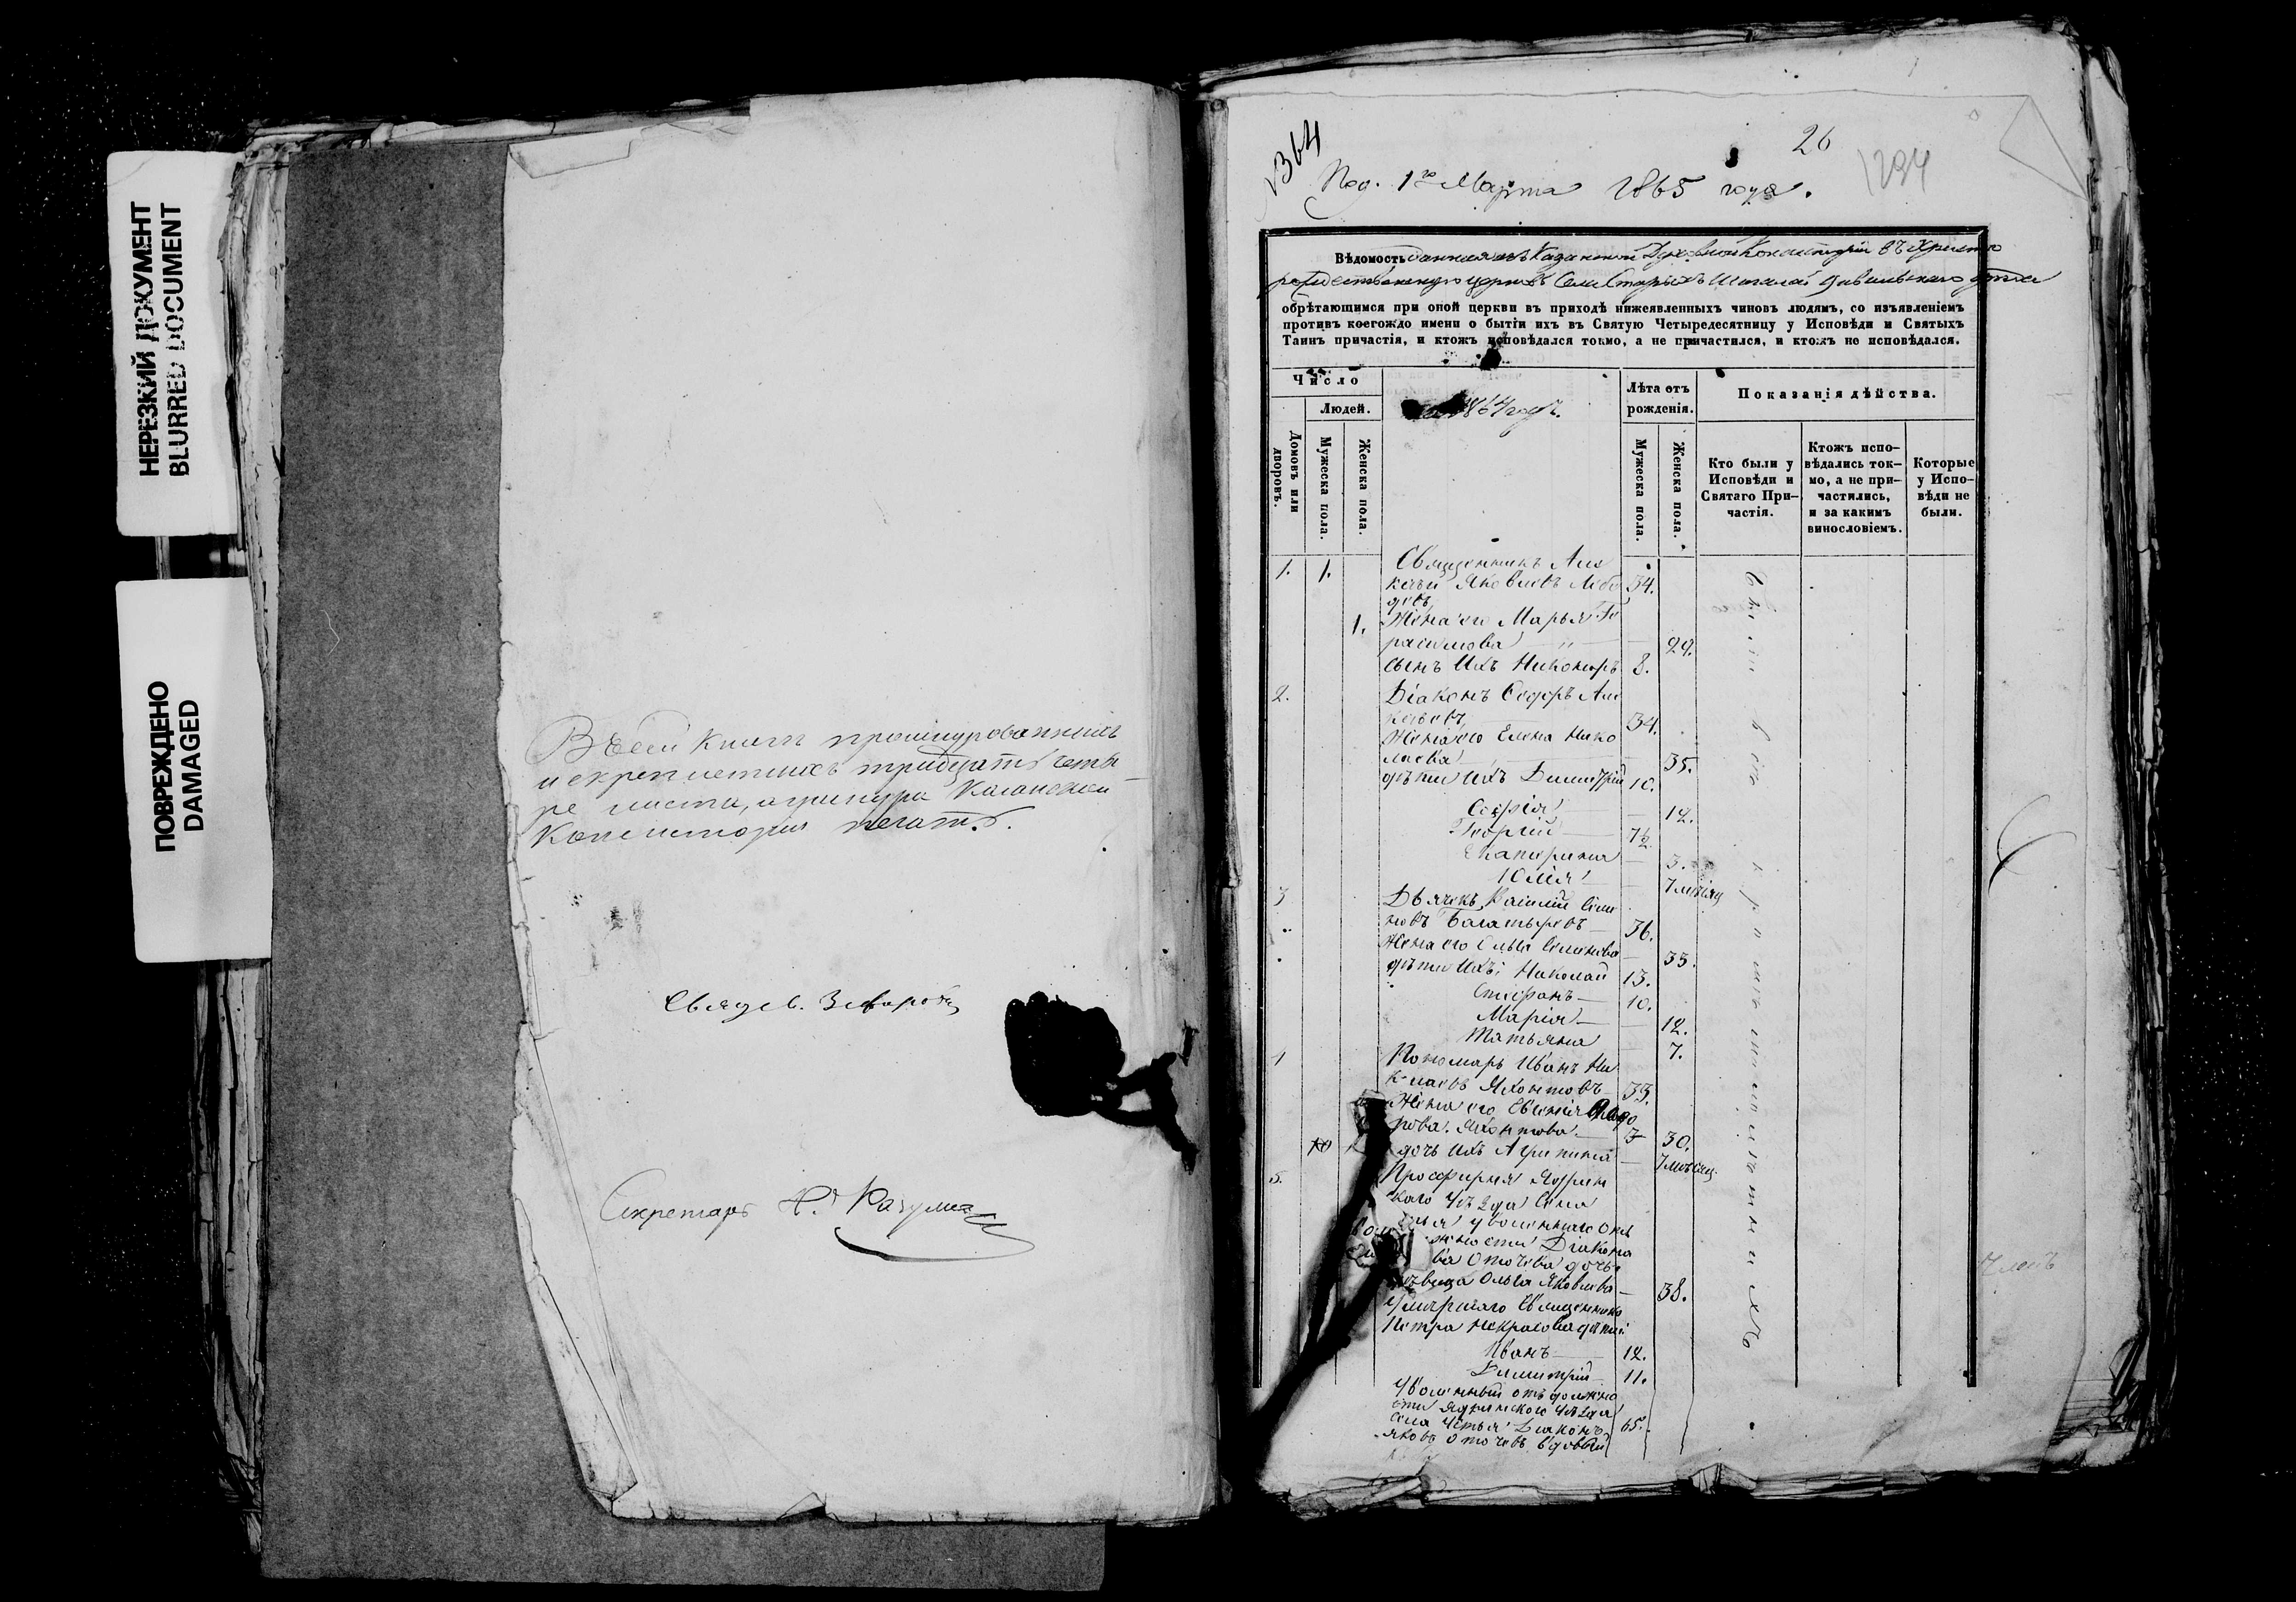 НЕРЕЗКИЙ ДОКУМЕНТ
BLURRED DOCUMENT
ПОВРЕЖДЕНО
DAMAGED
Въ сей книгѣ прошнурованныхъ
и скрепленныхъ тридцать четы-
ре листа, а у шнура Казанской
Консисторіи печать.
Секретарь Н.
364
26
1294
Под. 1го Марта 1865 года.
Вѣдомость данная изъ Казанской Духовной Консисторіи въ Христо
рождественскую церковь села Старыхъ Шигалей Цивильскаго уѣзда
обрѣтающимся при оной церкви въ приходѣ нижеявленныхъ чиновъ людямъ, со изъявленіемъ
противъ коегождо имени о бытіи ихъ въ Святую Четыредесятницу у Исповѣди и Святыхъ
Таинъ причастія, и ктожъ исповѣдался токмо, а не причастился, и ктожъ не исповѣдался.
Число
Людей.
Домовъ или дворовъ.
Мужеска пола.
Женска пола.
1864 годъ.
Лѣта отъ рожденія.
Мужеска пола.
Женска пола.
Показанія дѣйства.
Кто были у Исповѣди и Святаго При-частія.
Ктожъ испо-вѣдались ток-мо, а не при-частились, и за какимъ винословіемъ.
Которые у Испо-вѣди не были.
1. 1. Священникъ Але
ксѣй Яковлевъ Лебе 34.
девъ
1. Жена его Марья Ге
расимова 29.
сынъ ихъ Никаноръ 8.
2. Діаконъ Ѳедоръ Але
ксѣевъ 34.
Жена его Елена Нико
лаева 35.
дѣти ихъ Димитрій 10.
Софія 12.
Георгій 7½
Екатерина 3.
Юлія 7 мѣсяц
3 Дьячекъ Василій Семе
новъ Багатыревъ 36.
Жена его Ольга Семенова 33.
дѣти ихъ: Николай 13.
Стефанъ 10.
Марія 12.
Татьяна 7.
Пономарь Иванъ Ни
колаевъ Яхонтовъ 33.
Жена его Евгенія
рова. Яхонтова. 30.
дочь ихъ Агрипина 7 мѣсяц.
5. Просфирня Ядрин
скаго уѣзда села
уволеннаго отъ
жности Діакона
ва Оточева дочь
дѣвица Ольга Яковлева 38.
умершаго священника
Петра Некрасова дѣти
Иванъ 12.
Димитрій 11.
Уволенный отъ должно
сти Ядринскаго уѣзда
села Устья Діаконъ 65.
Яковъ Оточевъ вдовый
были все